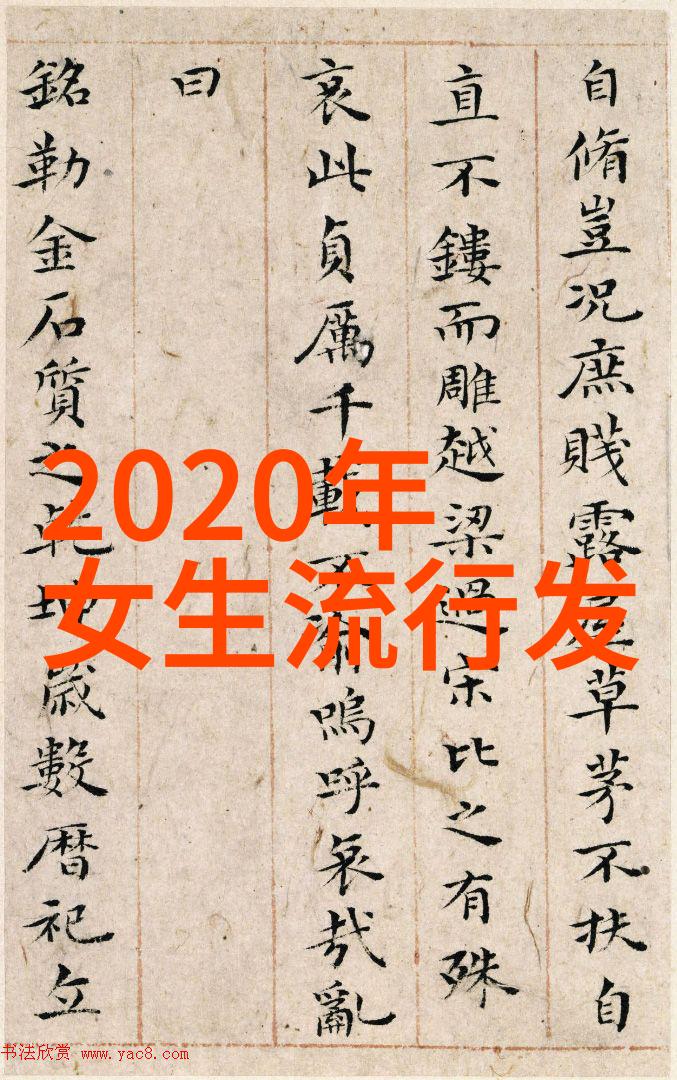 自脩豈況庶賤露屋草茅不扶自
直不鏤而雕越梁過宋比之有殊
哀此貞厲千載不渝嗚呼哀哉亂
曰
銘勒金石質之乾坤歲數曆祀丘
2020年
女生流行发
书法欣赏 www.yac8.com